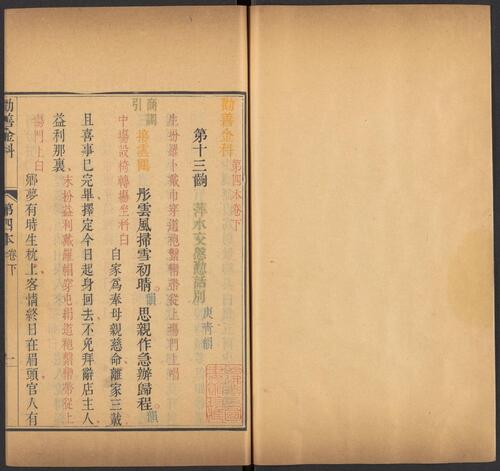 勸善金科
第四本卷下
第十三齣 萍水交慇懃話別 庚青韻
生扮羅卜戴巾穿道袍繫鸞帶從上場門上唱
商調引
接雲鶴 彤雲風掃雪初晴韻 思親作急辦歸程韻
中場設椅轉場坐科白 自家爲奉母親慈命離家三載
且喜事已完畢擇定今日起身回去不免拜辭店主人
益利那裏 末扮益利戴羅帽穿屯絹道袍繫鸞帶從上
場門上白 鄉夢有時生枕上客情終日在眉頭官人有
勸善金科
第四本卷下
一